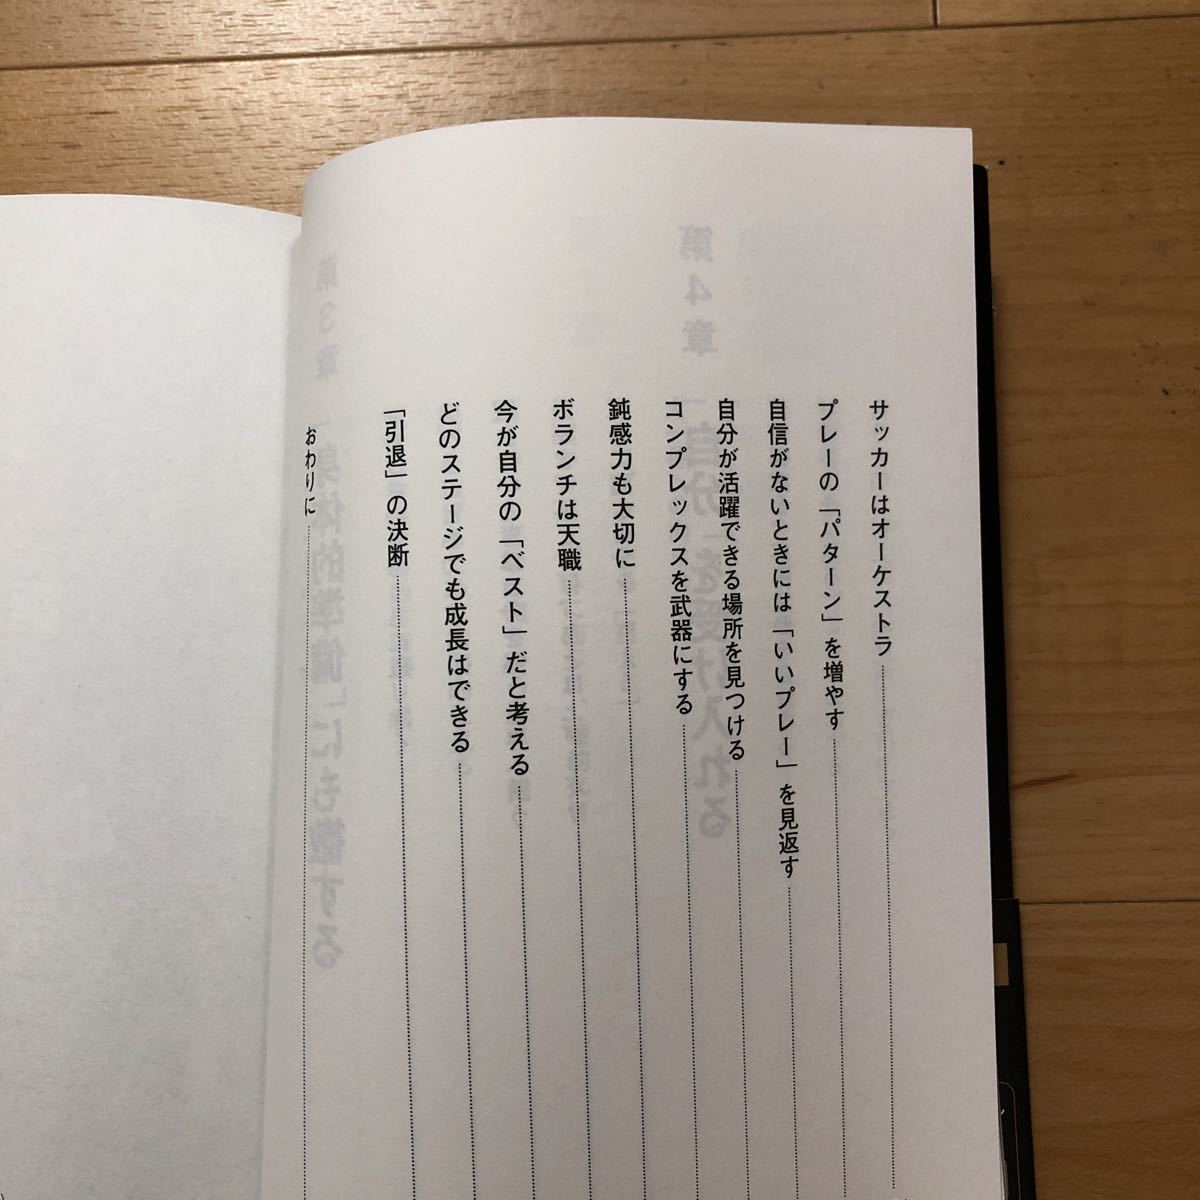 サッカーはオーケストラ
プレーの「パターン」を増やす
自信がないときには「いいプレー」を見返す
自分が活躍できる場所を見つける
コンプレックスを武器にする
鈍感力も大切に
ボランチは天職
今が自分の「ベスト」だと考える
どのステージでも成長はできる
「引退」の決断
おわりに
第4章
「自分」を受け入れる
第3章
「身体的準備」にも徹する